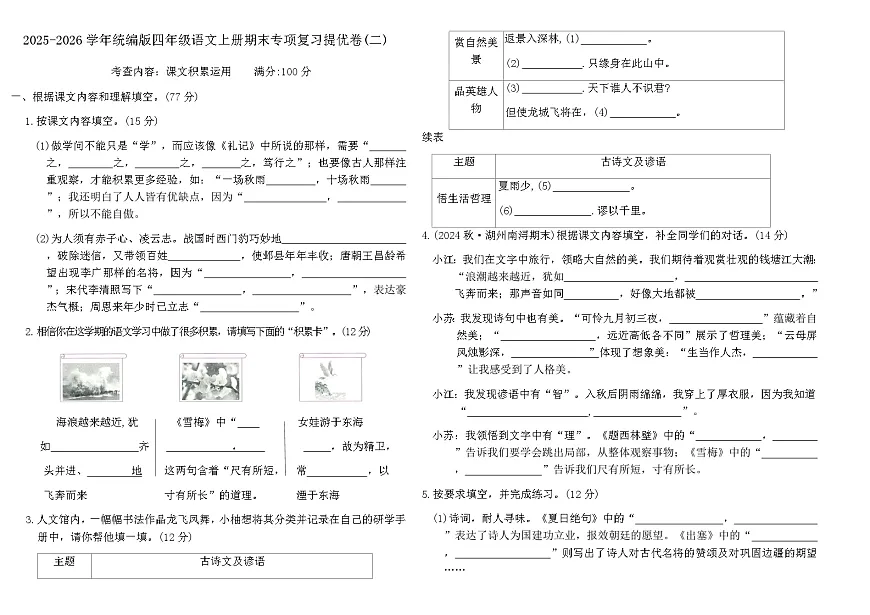 2025-2026学年统编版四年级语文上册期末专项复习提优卷(二)
考查内容：课文积累运用 满分:100分
一、根据课文内容和理解填空。(77分)
1.按课文内容填空。(15分)
(1)做学问不能只是“学”，而应该像《礼记》中所说的那样，需要“______
之，______之，______之，______之，笃行之”；也要像古人那样注
重观察，才能积累更多经验，如：“一场秋雨________，十场秋雨______
”；我还明白了人人皆有优缺点，因为“______________，____________
”，所以不能自傲。
(2)为人须有赤子心、凌云志。战国时西门豹巧妙地____________________
，破除迷信，又带领百姓____________，使邺县年年丰收；唐朝王昌龄希
望出现李广那样的名将，因为“______________，________________
”；宋代李清照写下“______________，________________”，表达豪
杰气概；周恩来年少时已立志“________________”。
2.相信你在这学期的语文学习中做了很多积累，请填写下面的“积累卡”。(12分)
海浪越来越近,犹
如______________齐
头并进、_______地
飞奔而来
《雪梅》中“____
___________，_____
这两句含着“尺有所短，
寸有所长”的道理。
女娃游于东海
____，故为精卫，
常____________，以
湮于东海
3.人文馆内，一幅幅书法作品龙飞凤舞，小柚想将其分类并记录在自己的研学手
册中，请你帮他填一填。(12分)
主题 古诗文及谚语
赏自然美景 返景入深林,(1)__________。
(2)__________.只缘身在此山中。
品英雄人物 (3)__________.天下谁人不识君?
但使龙城飞将在，(4)__________。
续表
主题 古诗文及谚语
悟生活哲理 夏雨少,(5)____________。
(6)____________.谬以千里。
4.(2024秋·湖州南浔期末)根据课文内容填空，补全同学们的对话。(14分)
小江：我们在文字中旅行，领略大自然的美。我们期待着观赏壮观的钱塘江大潮：
“浪潮越来越近，犹如________________，____________________
飞奔而来；那声音如同________，好像大地都被________________。”
小苏：我发现诗句中也有美。“可怜九月初三夜，______________”蕴藏着自
然美；“______________，远近高低各不同”展示了哲理美；“云母屏
风烛影深，____________”体现了想象美：“生当作人杰，__________
”让我感受到了人格美。
小江：我发现谚语中有“智”。入秋后阴雨绵绵，我穿上了厚衣服，因为我知道
“__________________,______________”。
小苏：我领悟到文字中有“理”。《题西林壁》中的“__________，_______
”告诉我们要学会跳出局部，从整体观察事物；《雪梅》中的“_________
，____________”告诉我们尺有所短，寸有所长。
5.按要求填空，并完成练习。(12分)
(1)诗词，耐人寻味。《夏日绝句》中的“______________，____________
”表达了诗人为国建功立业，报效朝廷的愿望。《出塞》中的“__________
，________________”则写出了诗人对古代名将的赞颂及对巩固边疆的期望
……